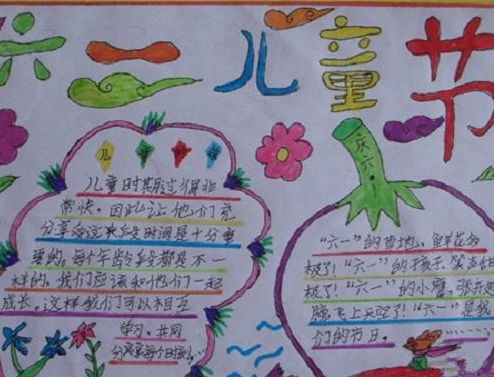 六一儿童节
儿童时期过得非
常快。因此让他们充
分享受这段时间是十分重
要的。每个年龄段都是不一
样的。我们应该和他们一起
成长。这样我们可以相互
学习。共同
分享每个日子
庆六·一
"六一"的草地，鲜花多
极了！"六一"的孩子，笑声甜
极了！"六一"的小鹰，张开
腾飞上天空了！"六一"是我
们的节日。